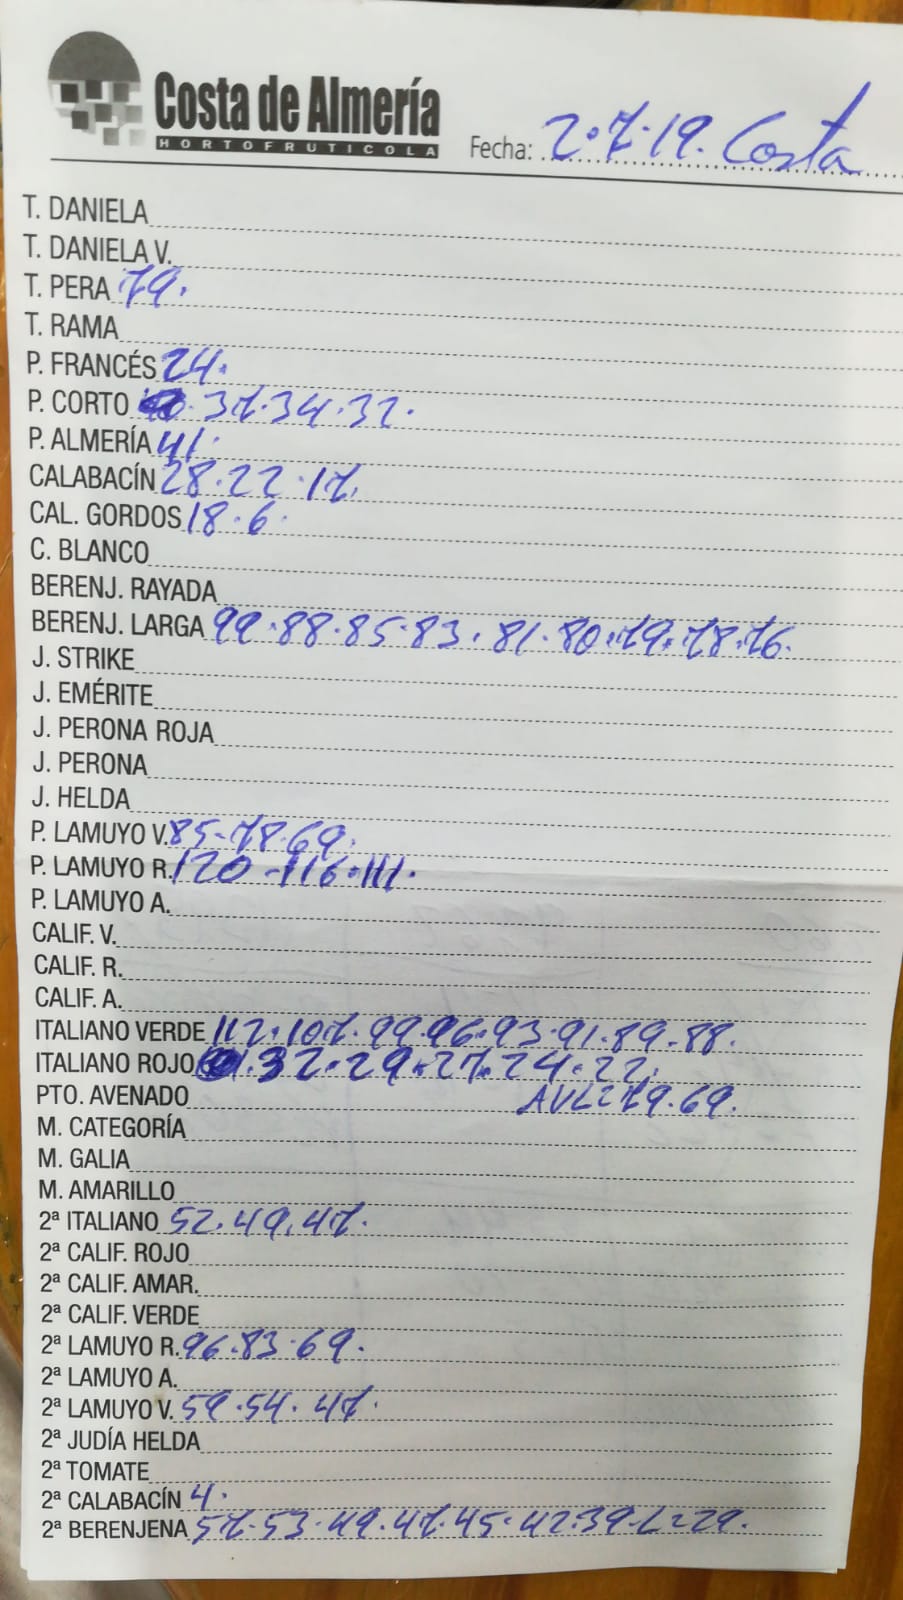 Costa de Almería
HORTOFRUTICOLA
Fecha: 2.7.19. Costa
T. DANIELA
T. DANIELA V.
T. PERA 79.
T. RAMA
P. FRANCÉS 24.
P. CORTO 37.34.32.
P. ALMERÍA 41.
CALABACÍN 28.22.17.
CAL. GORDOS 18.6.
C. BLANCO
BERENJ. RAYADA
BERENJ. LARGA 99.88.85.83.81.80.79.78.76.
J. STRIKE
J. EMÉRITE
J. PERONA ROJA
J. PERONA
J. HELDA
P. LAMUYO V. 85-78.69.
P. LAMUYO R. 120-116.111.
P. LAMUYO A.
CALIF. V.
CALIF. R.
CALIF. A.
ITALIANO VERDE 112.107.99.96.93.91.89.88.
ITALIANO ROJO 32.29.27.24.22.
PTO. AVENADO 79.69.
M. CATEGORÍA
M. GALIA
M. AMARILLO
2ª ITALIANO 52.49.47.
2ª CALIF. ROJO
2ª CALIF. AMAR.
2ª CALIF. VERDE
2ª LAMUYO R. 96.83.69.
2ª LAMUYO A.
2ª LAMUYO V. 59.54.47.
2ª JUDÍA HELDA
2ª TOMATE
2ª CALABACÍN 4.
2ª BERENJENA 57.53.49.47.45.42.39-L=29.